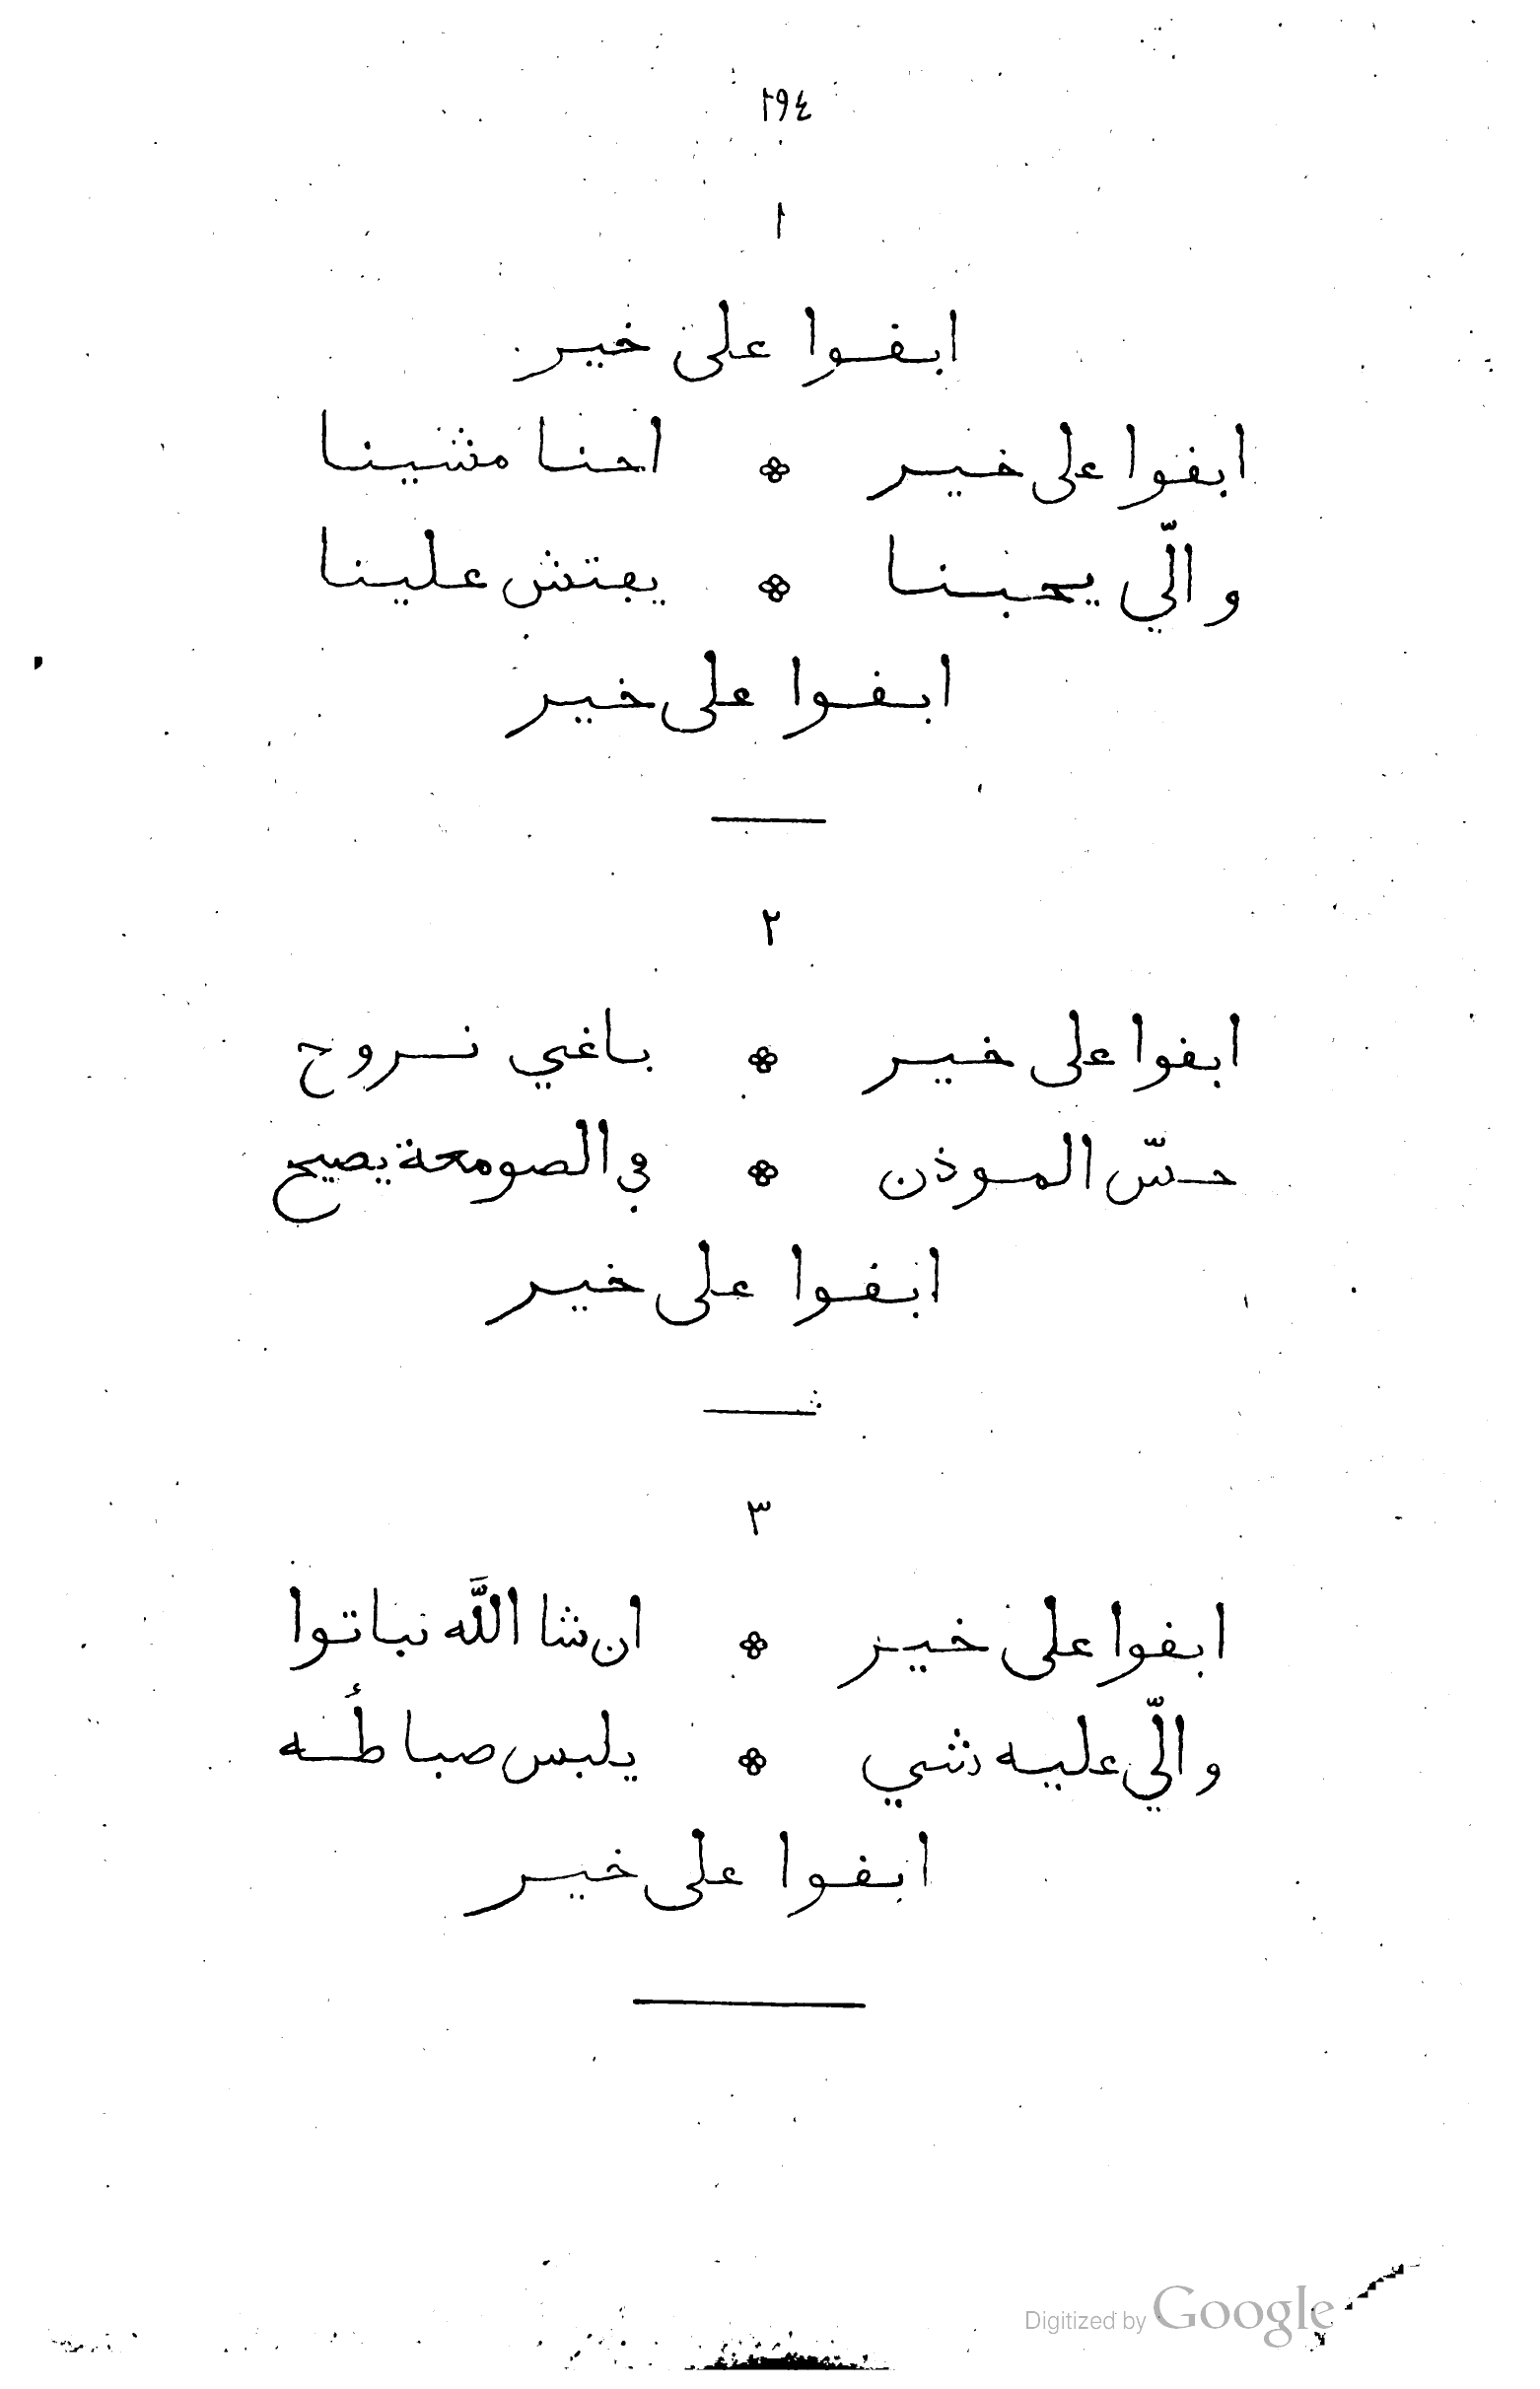 ١٩٤
١
ابقوا على خير
ابقوا على خير ۞ احنا مشينا
والّي يحبنا ۞ يفتش علينا
ابقوا على خير
٢
ابقوا على خير ۞ باغي نروح
حسّ الموذن ۞ في الصومعة يصيح
ابقوا على خير
٣
ابقوا على خير ۞ ان شا اللّه نباتوا
والّي عليه شي ۞ يلبس صباطه
ابقوا على خير
Digitized by Google